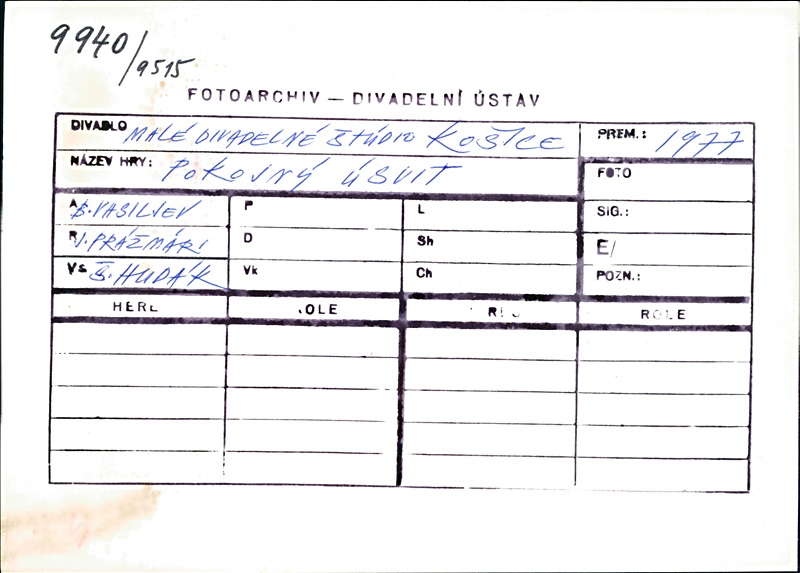 9940/9515
FOTOARCHIV — DIVADELNÍ ÚSTAV
DIVADLO MALÉ DIVADELNÉ ŠTÚDIO KOŠICE PREM.: 1977
NÁZEV HRY: POKOVNÝ ÚSVIT FOTO
A B. VASILJEV P L SIG.:
R J. PRÁZMÁRI D Sh E/
Vs Š. HUDÁK Vk Ch POZN.:
HERE OLE ROLE